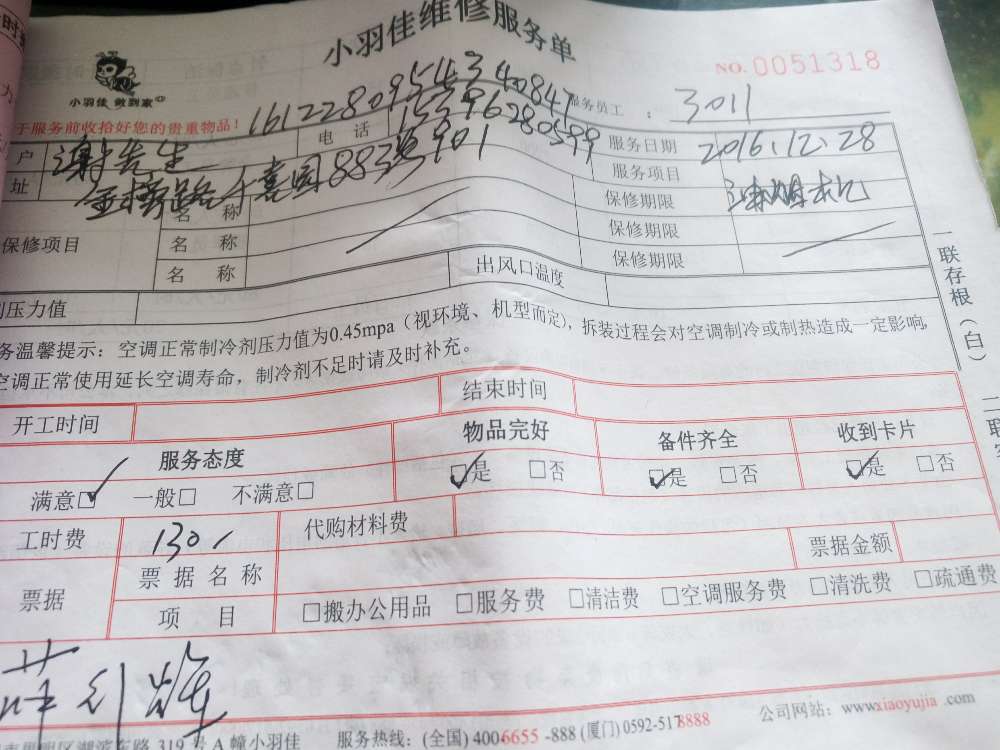 小羽佳维修服务单
NO.0051318
小羽佳 做到家
161228095434 0847
服务员工:3011
于服务前收拾好您的贵重物品!
户 谢先生 电话 15396280599 服务日期 2016.12.28
址 金桥路千喜园88号901 服务项目
保修项目 名称 保修期限
名称 保修期限
名称 保修期限
剂压力值 出风口温度
务温馨提示:空调正常制冷剂压力值为0.45mpa(视环境、机型而定),拆装过程会对空调制冷或制热造成一定影响,
空调正常使用延长空调寿命,制冷剂不足时请及时补充。
开工时间 结束时间
服务态度 物品完好 备件齐全 收到卡片
满意☑ 一般□ 不满意□ ☑是 □否 ☑是 □否 ☑是 □否
工时费 130 代购材料费
票据 票据名称 票据金额
项目 □搬办公用品 □服务费 □清洁费 □空调服务费 □清洗费 □疏通费
明区湖滨东路 319 号A幢小羽佳 服务热线:(全国) 4006655-888 (厦门) 0592-5178888 公司网站:www.xiaoyujia.com
一联存根(白)
二联客